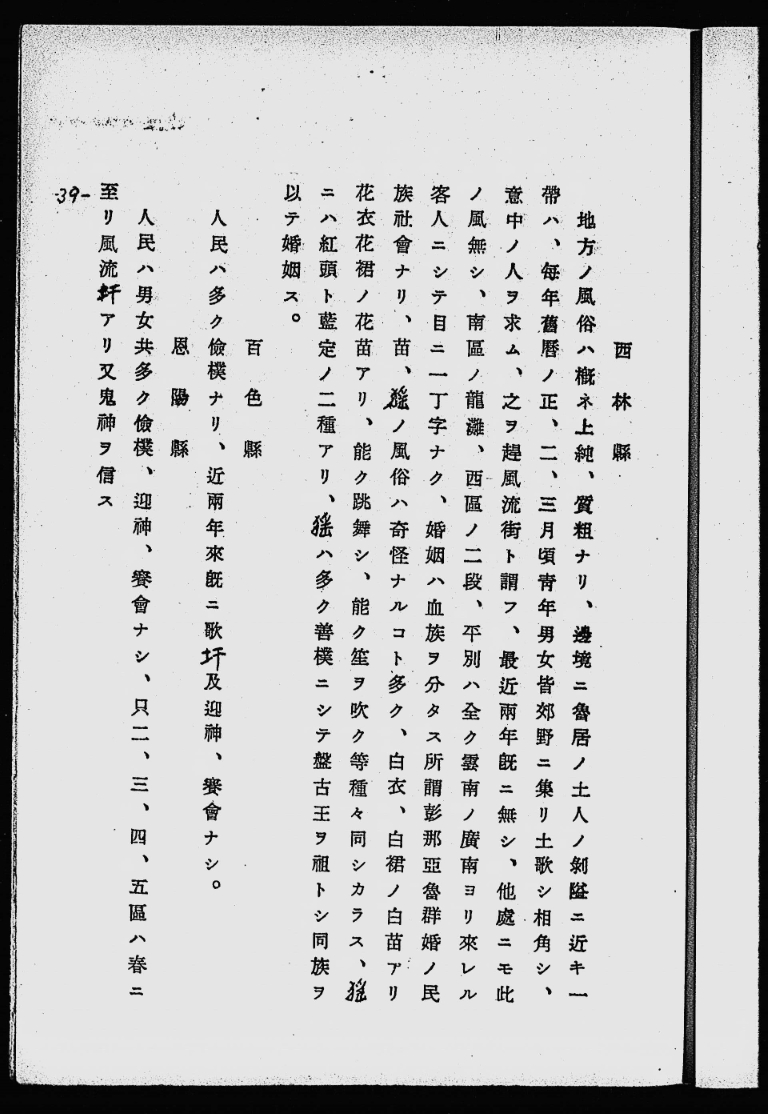 西林縣
地方ノ風俗ハ槪ネ上純、質粗ナリ、邊境ニ魯居ノ土人ノ剝隘ニ近キ一
帶ハ、每年舊曆ノ正、二、三月頃靑年男女皆郊野ニ集リ土歌シ相角シ、
意中ノ人ヲ求ム、之ヲ趕風流街ト謂フ、最近兩年旣ニ無シ、他處ニモ此
ノ風無シ、南區ノ龍灘、西區ノ二段、平別ハ全ク雲南ノ廣南ヨリ來レル
客人ニシテ目ニ一丁字ナク、婚姻ハ血族ヲ分タス所謂彭那亞魯群婚ノ民
族社會ナリ、苗、猺ノ風俗ハ奇怪ナルコト多ク、白衣、白裙ノ白苗アリ
花衣花裙ノ花苗アリ、能ク跳舞シ、能ク笙ヲ吹ク等種々同シカラス、猺
ニハ紅頭ト藍定ノ二種アリ、猺ハ多ク善樸ニシテ盤古王ヲ祖トシ同族ヲ
以テ婚姻ス。
百色縣
人民ハ多ク儉樸ナリ、近兩年來旣ニ歌圩及迎神、賽會ナシ。
恩陽縣
人民ハ男女共多ク儉樸、迎神、賽會ナシ、只二、三、四、五區ハ春ニ
至リ風流圩アリ又鬼神ヲ信ス
-39-